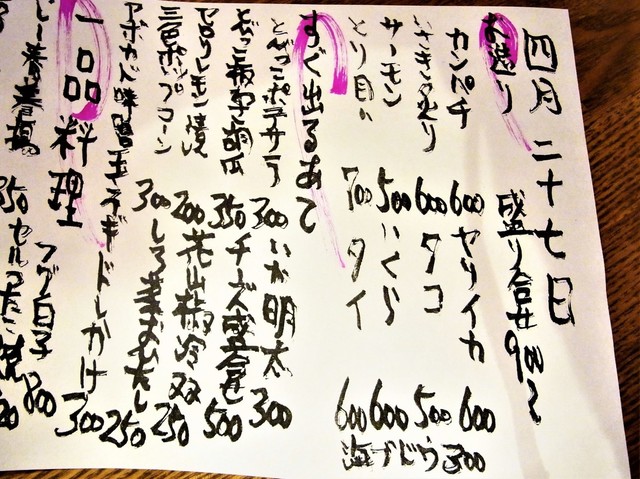 四月二十七日
お造り 盛り合せ 900〜
カンパチ 600 ヤリイカ 600
いさき炙り 600 タコ 500
サーモン 500 いくら 600
とり貝 700 タイ 600
海ブドウ 300
すぐ出るあて
とびっこポテサラ 300 いか明太 300
とびっこ板雲胡瓜 350 チーズ盛合せ 500
セロリレモン漬 200 花山椒冷奴 250
三色ポップコーン 300 しろ菜おひたし 250
アボカド味噌玉ネギドレかけ 300
一品料理
フグ白子 800
春巻揚 350